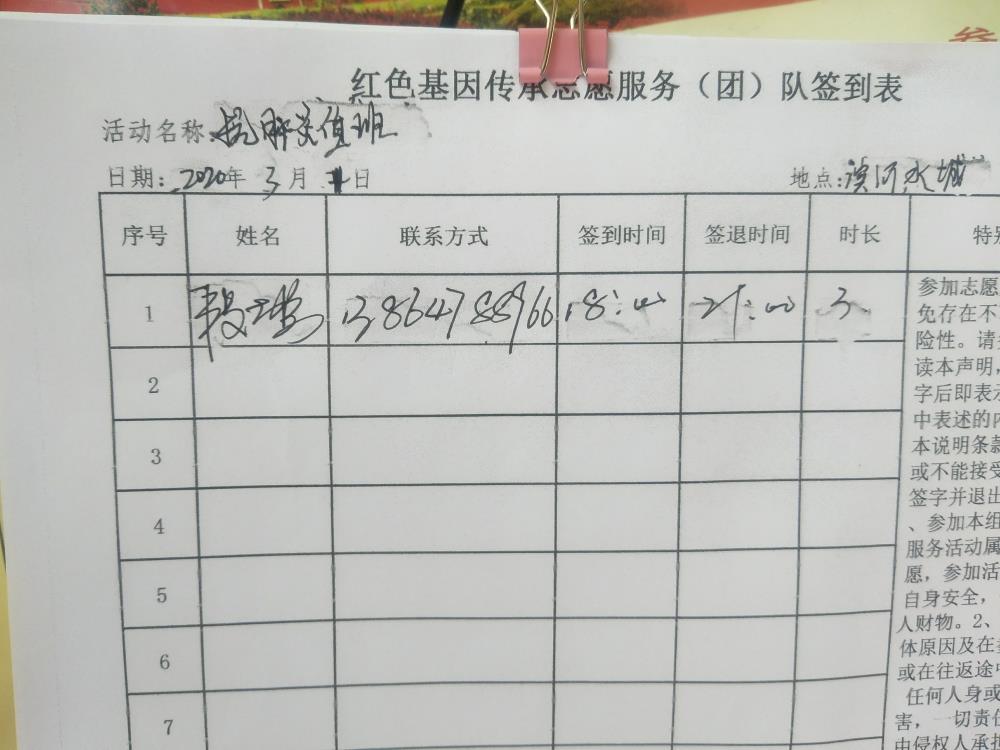 红色基因传承志愿服务（团）队签到表
活动名称:抗肺炎值班
日期: 2020年 3月 1日 地点:滨河水城
序号 姓名 联系方式 签到时间 签退时间 时长 特别
1 13864788966 18:00 21:00 3
2
3
4
5
6
7
参加志愿
免存在不
险性。请
读本声明,
字后即表示
中表述的内
本说明条款
或不能接受
签字并退出
、参加本组
服务活动属
愿，参加活
自身安全，
人财物。2、
体原因及在
或在往返途中
任何人身或
害，一切责任
由侵权人承担